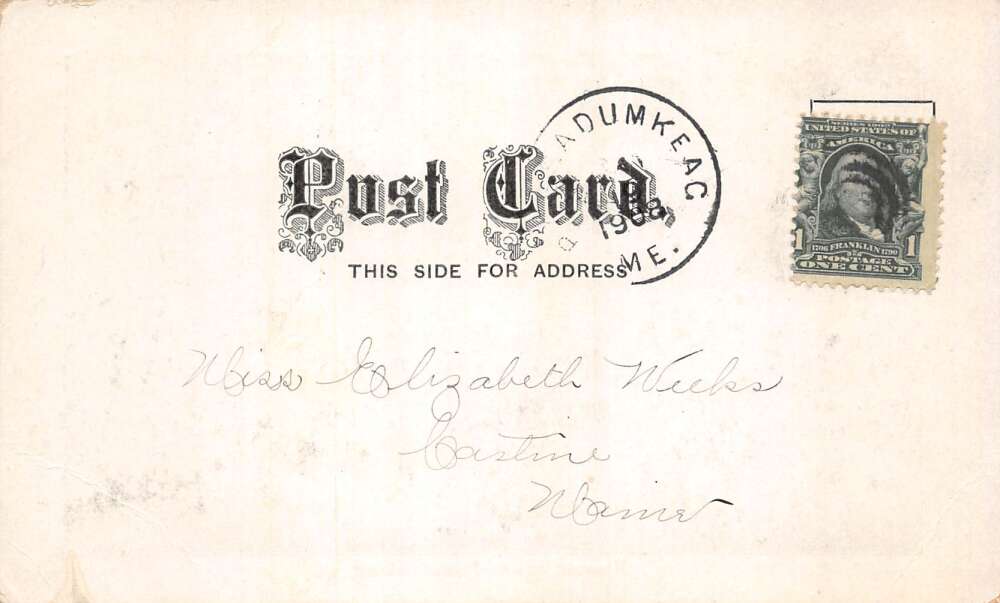 Post Card.
THIS SIDE FOR ADDRESS
ADUMKEAC
ME.
SERIES 1902
UNITED STATES OF
AMERICA
1 1
1706 FRANKLIN 1790
POSTAGE
ONE CENT
Miss Elizabeth Weeks
Castine
Maine